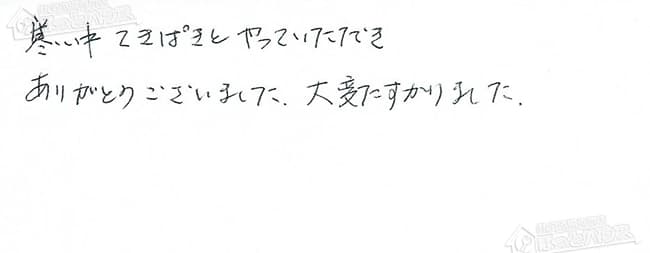 寒い中 てきぱきと やっていただき
ありがとうございました、大変たすかりました、